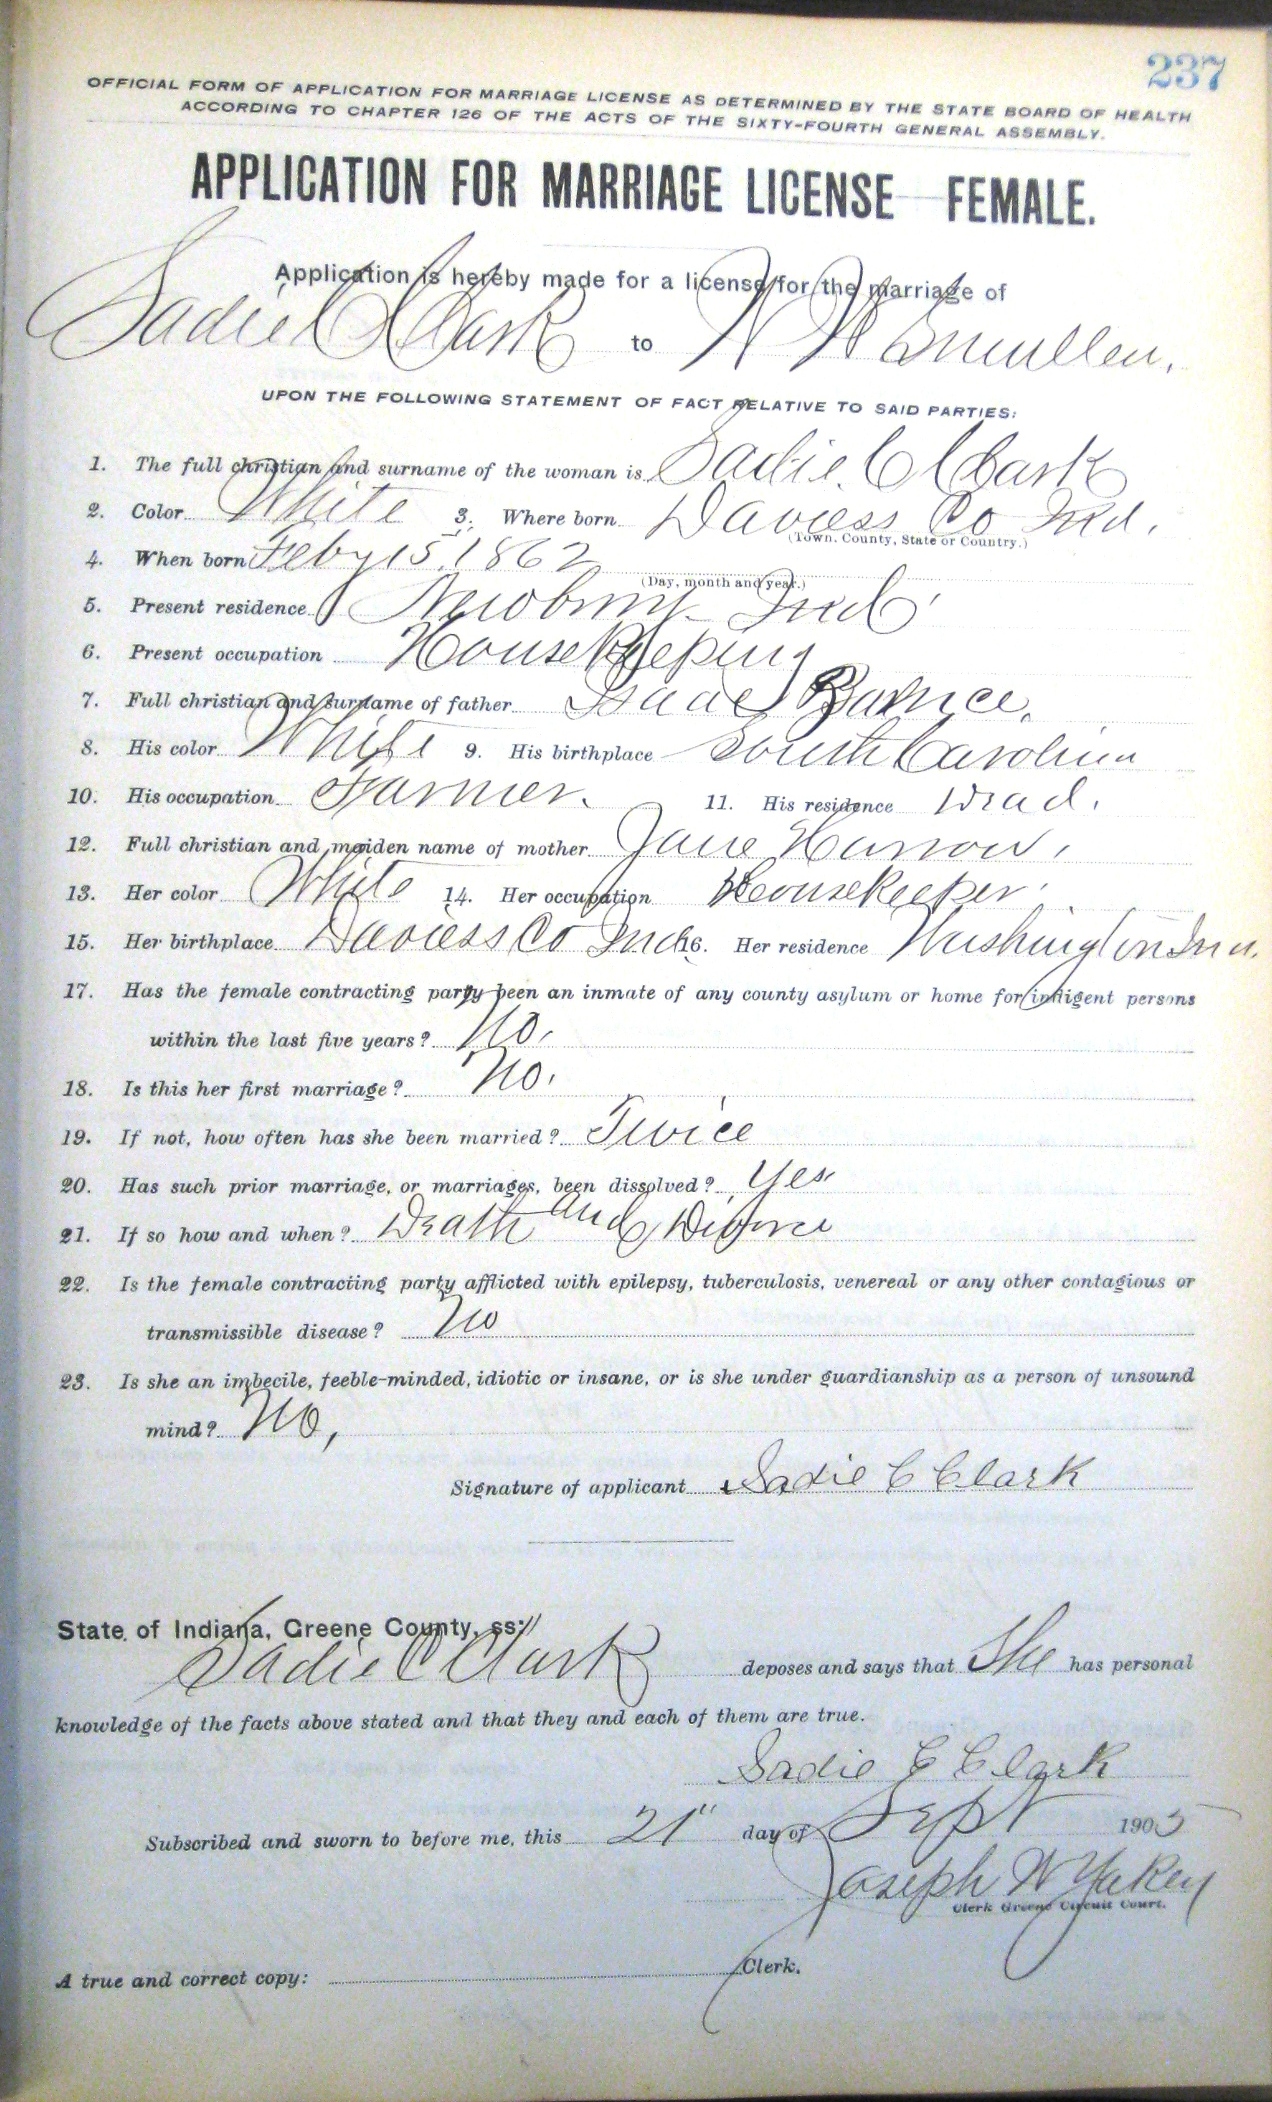 237
OFFICIAL FORM OF APPLICATION FOR MARRIAGE LICENSE AS DETERMINED BY THE STATE BOARD OF HEALTH
ACCORDING TO CHAPTER 126 OF THE ACTS OF THE SIXTY-FOURTH GENERAL ASSEMBLY.
APPLICATION FOR MARRIAGE LICENSE FEMALE.
Application is hereby made for a license for the marriage of
Sadie C Clark to
UPON THE FOLLOWING STATEMENT OF FACT RELATIVE TO SAID PARTIES:
1. The full christian and surname of the woman is Sadie C Clark
2. Color White 3. Where born Daviess Co Ind.
(Town. County, State or Country.)
4. When born Feby 15, 1862
(Day, month and year.)
5. Present residence Newberry Ind.
6. Present occupation Housekeeping
7. Full christian and surname of father Isaac
8. His color White 9. His birthplace South Carolina
10. His occupation Farmer. 11. His residence Dead.
12. Full christian and maiden name of mother Jane
13. Her color White 14. Her occupation Housekeeper.
15. Her birthplace Daviess Co Ind. 16. Her residence Washington Ind.
17. Has the female contracting party been an inmate of any county asylum or home for indigent persons
within the last five years? No.
18. Is this her first marriage? No.
19. If not, how often has she been married? Twice
20. Has such prior marriage, or marriages, been dissolved? Yes
21. If so how and when? Death and Divorce
22. Is the female contracting party afflicted with epilepsy, tuberculosis, venereal or any other contagious or
transmissible disease? No
23. Is she an imbecile, feeble-minded, idiotic or insane, or is she under guardianship as a person of unsound
mind? No,
Signature of applicant Sadie C Clark
State of Indiana, Greene County, ss:
Sadie C Clark deposes and says that She has personal
knowledge of the facts above stated and that they and each of them are true.
Sadie C Clark
Subscribed and sworn to before me, this 21" day of Sept 1905
Joseph W Yakey
Clerk Greene Circuit Court.
A true and correct copy: Clerk.